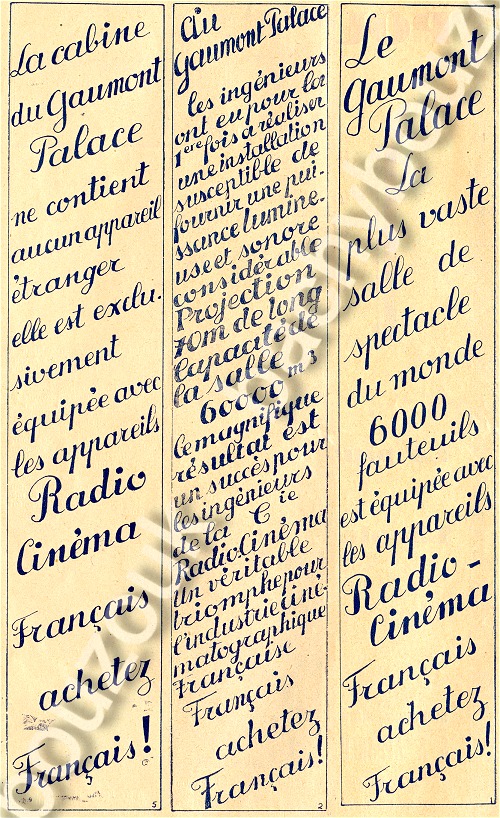 La cabine
du Gaumont
Palace
ne contient
aucun appareil
étranger
elle est exclu-
sivement
équipée avec
les appareils
Radio
Cinéma
Français
achetez
Français!
5
Au
Gaumont Palace
les ingénieurs
ont eu pour la
1ère fois à réaliser
une installation
susceptible de
fournir une pui-
ssance lumine-
use et sonore
considérable
Projection
70m de long
Capacité de
la salle
60000 m3
Ce magnifique
résultat est
un succès pour
les ingénieurs
de la Cie
Radio.Cinéma
un véritable
triomphe pour
l'industrie ciné-
matographique
Française
Français
achetez
Français!
2
Le
Gaumont
Palace
La
plus vaste
salle de
spectacle
du monde
6000
fauteuils
est équipée avec
les appareils
Radio-
Cinéma
Français
achetez
Français!
1